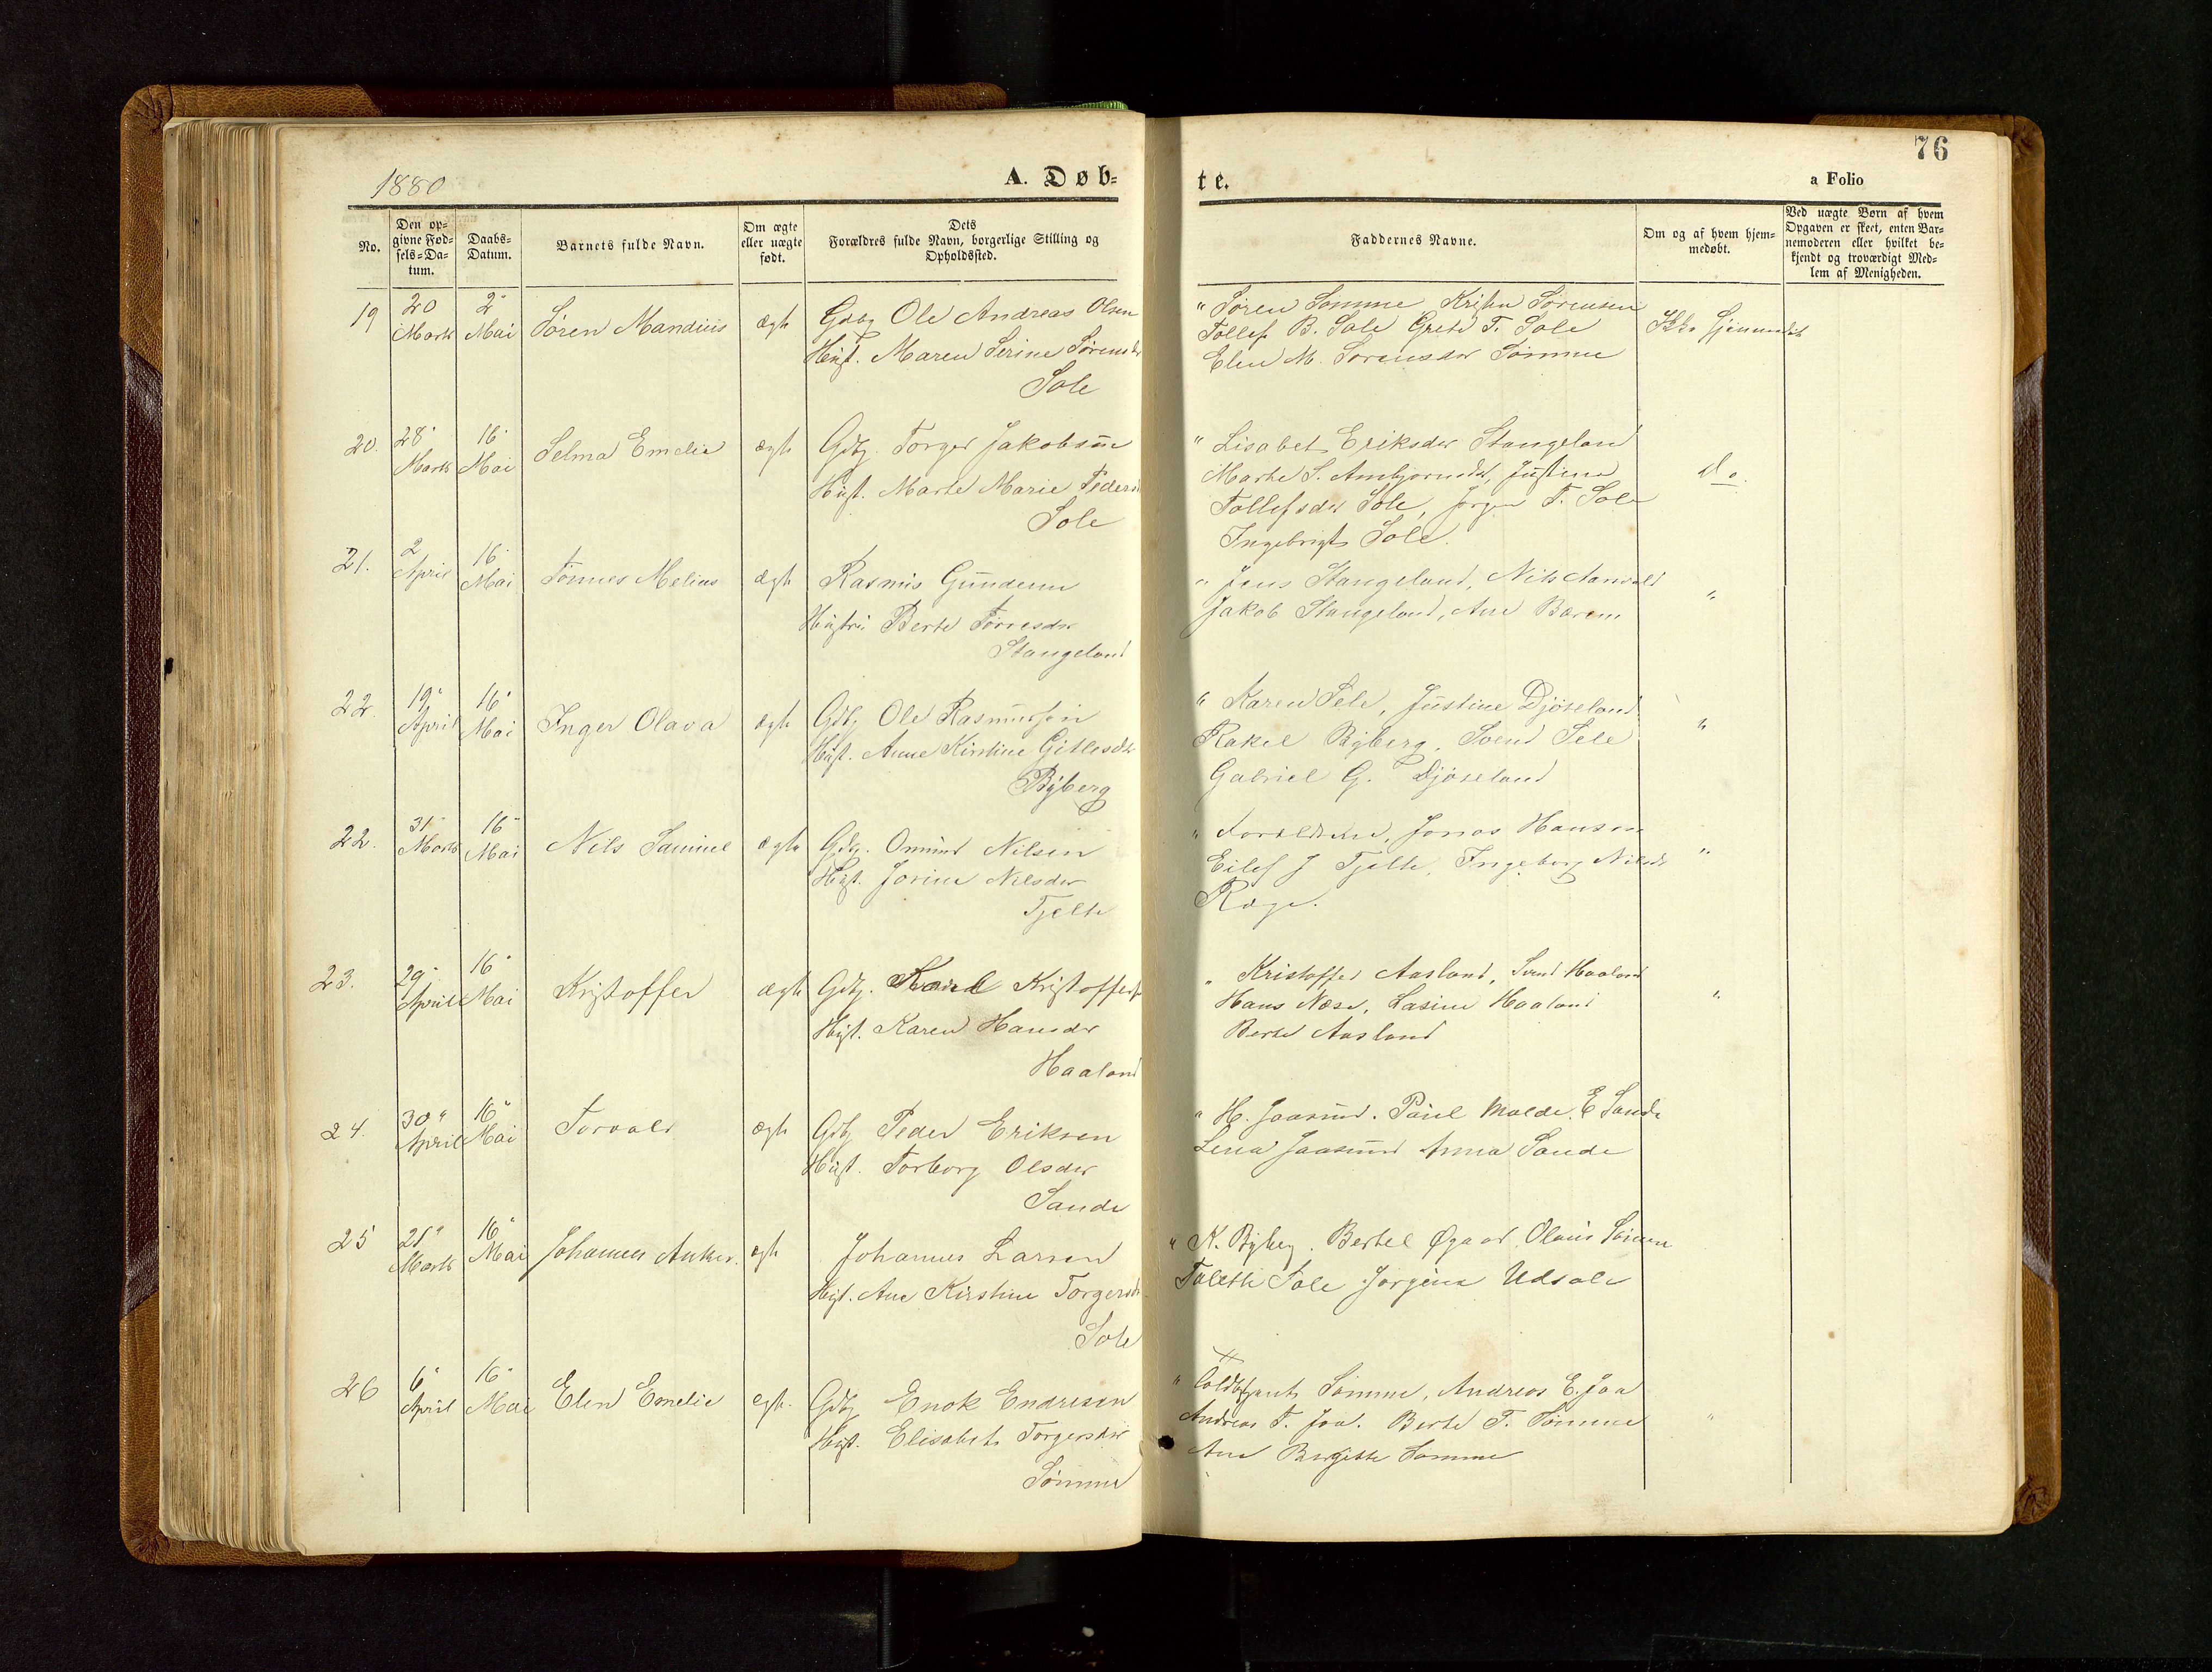 76
1880
A. Døb-
te.
a Folio
No.
Den op-
givne Fød-
sels-Da-
tum.
Daabs-
Datum.
Barnets fulde Navn.
Om ægte
eller uægte
født.
Dets
Forældres fulde Navn, borgerlige Stilling og
Opholdssted.
Faddernes Navne.
Om og af hvem hjem-
medøbt.
Ved uægte Børn af hvem
Opgaven er skeet, enten Bar-
nemoderen eller hvilket be-
kjendt og troværdigt Med-
lem af Menigheden.
19 20 Marts 2 Mai Søren Mandius ægte
Gdbg Ole Andreas Olsen
Hust. Maren Serine Sørensdr
Sole
" Søren Sømme Sørensen
Tollef B. Sole Grete T. Sole
Elen M. Sørensdr Sømme
Ikke hjemmedøbt
20. 28 Marts 16 Mai Selma Emelie ægte
Gdbg. Torger Jakobsen
Hust. Marte Marie
Sole
" Lisabet Eriksdr Stangeland
Marte S. Justine
Tollefsdr Sole, Jørgen T. Sole
Ingebrigt Sole.
do.
21. 2 April 16 Mai Tønnes Melius ægte
Rasmus
Hustru Berte
Stangeland
" Jens Stangeland, Nils
Jakob Stangeland, Ane
"
22 19 April 16 Mai Inger Olava ægte
Gdbg Ole Rasmussen
Hust. Anne Kirstine Gitlesdr
Byberg
" Karen Sele, Justine Djøseland
Rakel Byberg, Svend Sele
Gabriel G. Djøseland
"
22. 31 Marts 16 Mai Nels Samuel ægte
Gdbg. Omund Nilsen
Hust. Jorine Nilsdr
Tjelte
" Forældrene, Jonas Hansen
Eilef J Tjelte, Ingeborg Nilsdr
Ræge.
"
23. 29 April 16 Mai Kristoffer ægte
Gdbg. Karl Kristoffers
Hust. Karen Hansdr
Haaland
" Kristoffer Aasland, Svend Haaland
Hans Næse, Lasine Haaland
Berte Aasland
"
24. 30 April 16 Mai Torvald ægte
Gdbg Peder Eriksen
Hust. Torborg Olsdr
Sande
" H. Jaasund. Paul Molde. E Sande
Lena Jaasund Anna Sande
25 25 Marts 16 Mai Johannes Anker. ægte
Johannes Larsen
Hust. Ane Kirstine Torgersdr
Sole
" K. Byberg. Bertel Øgaard Olaus
Sole Jørgine Udsole
26 6 April 16 Mai Elen Emelie ægte.
Gdbg Enok Endresen
Hust. Elisabet Torgersdr
Sømme
" Sømme, Andreas E. Joa
Andreas T. Joa. Berte T. Sømme
Ane Birgitte Sømme
"